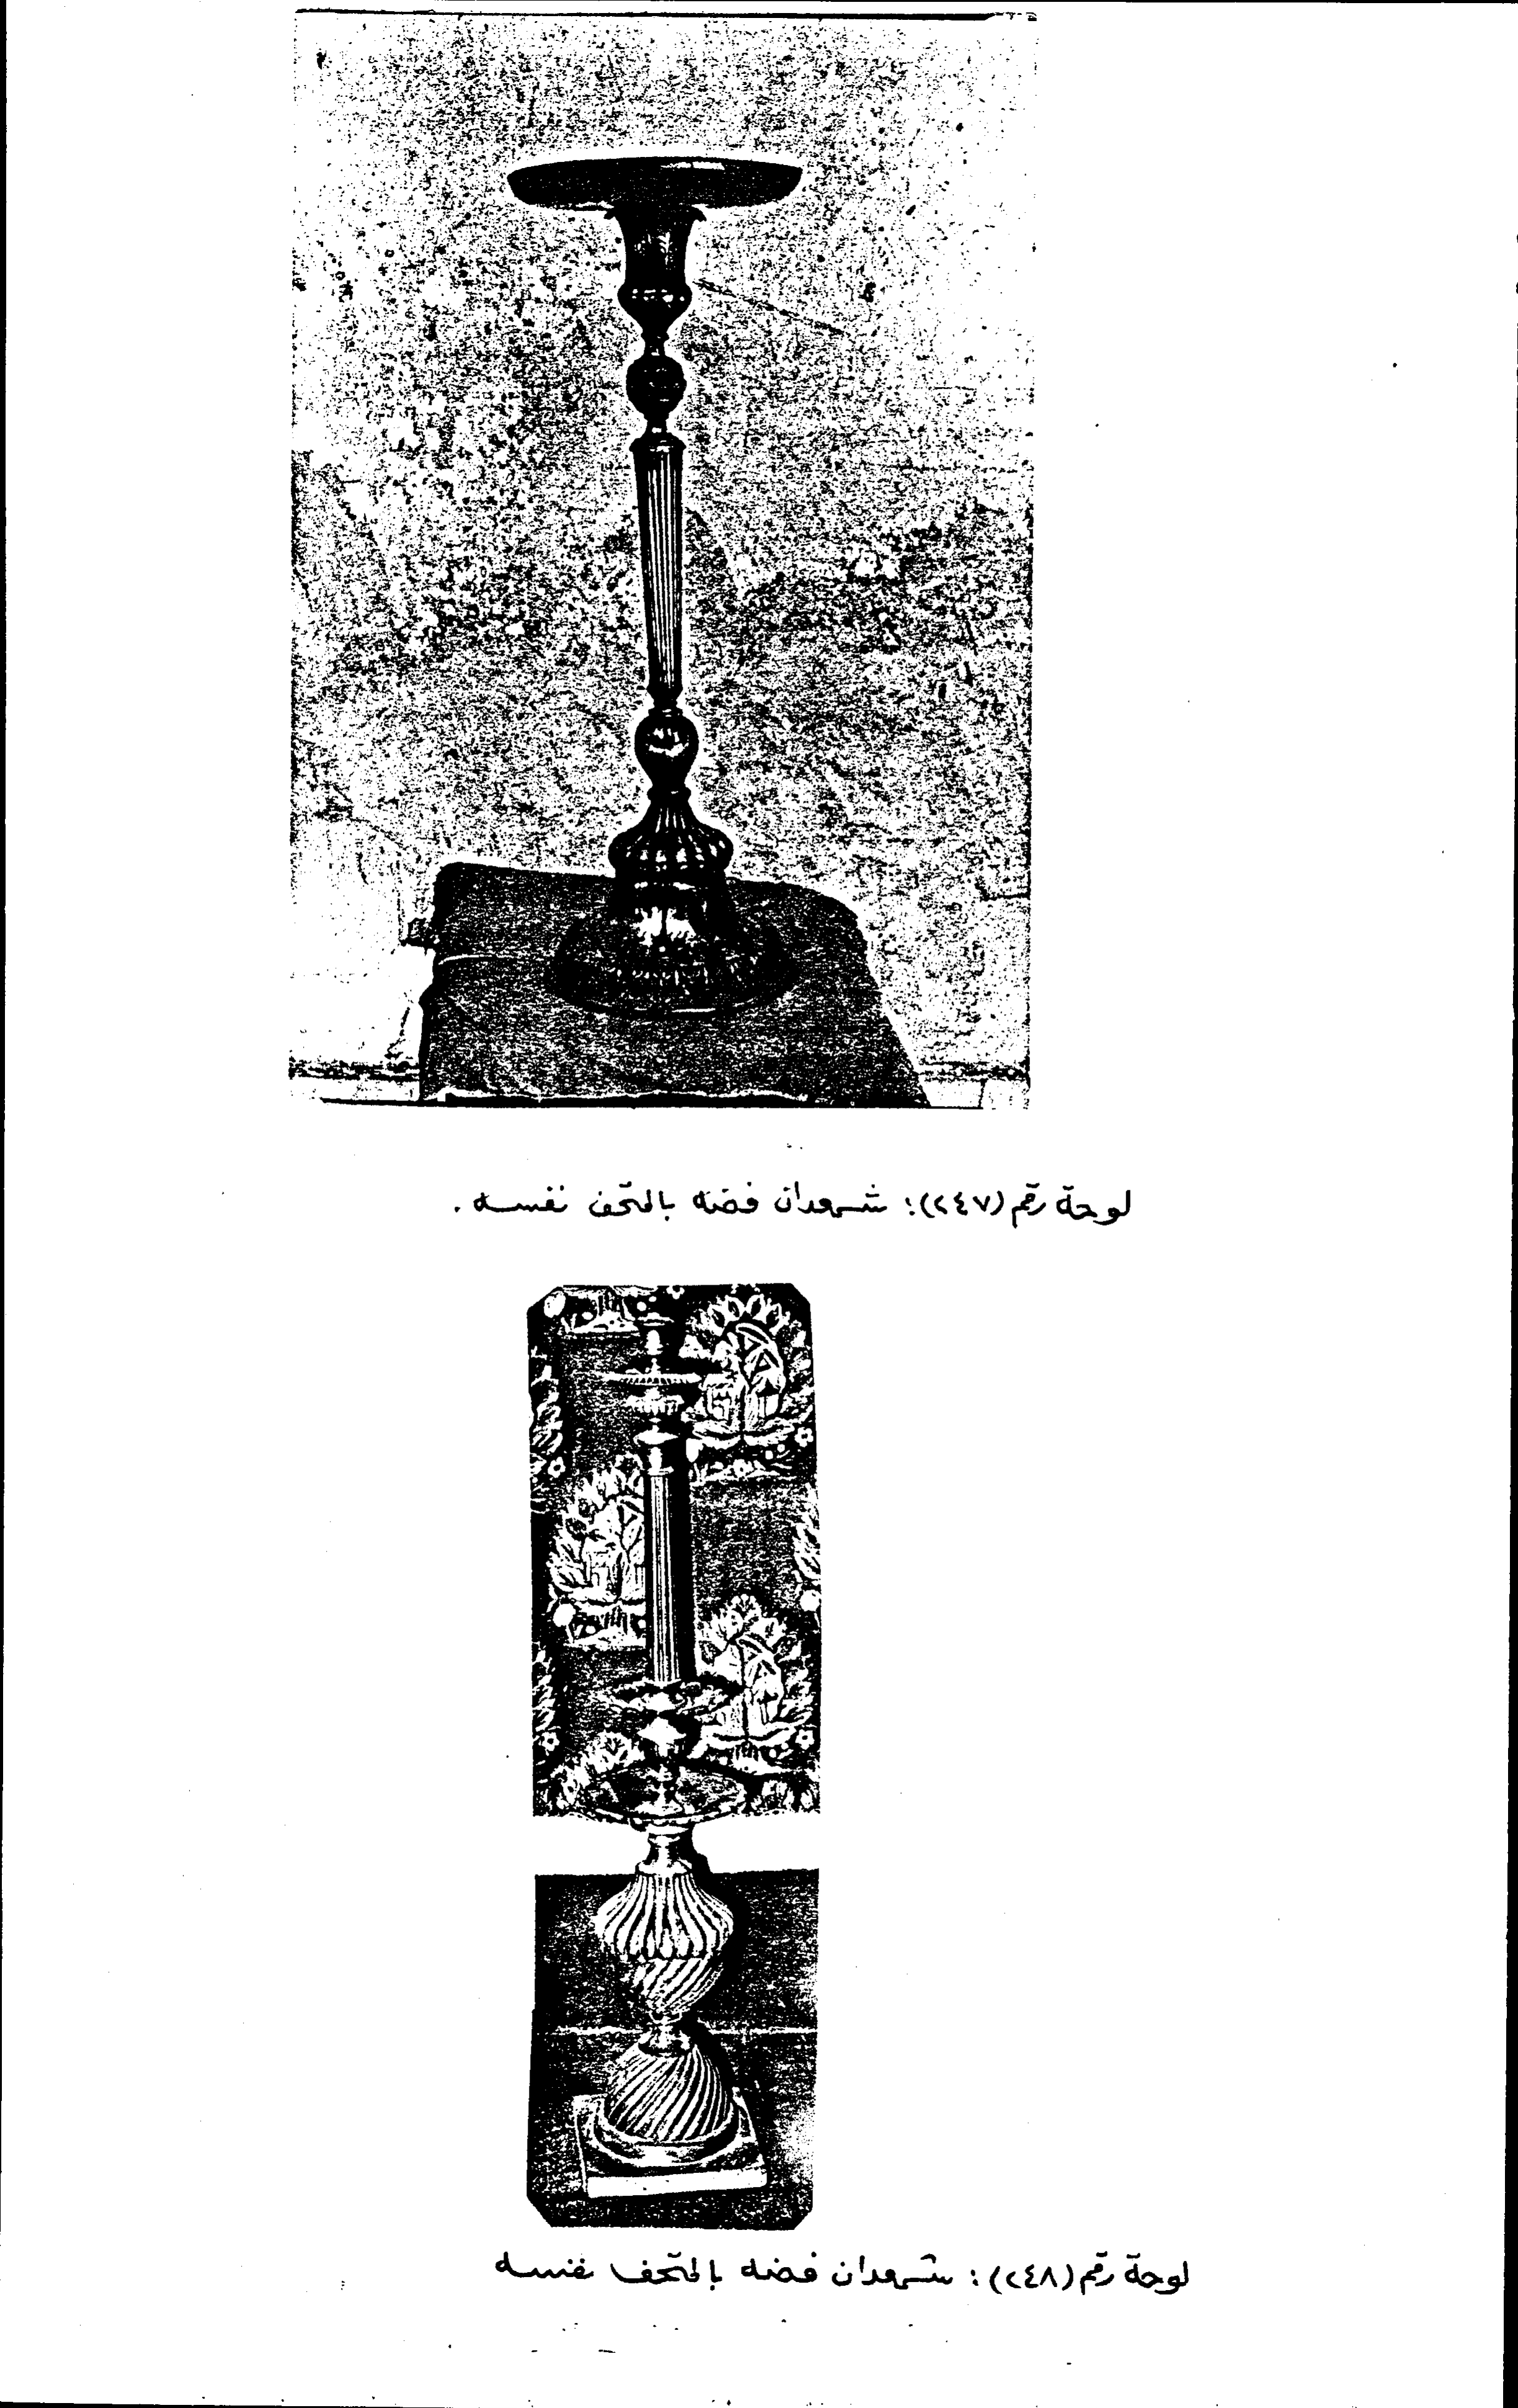 لوحة رقم (٢٤٧): شمعدان فضه بالمتحف نفسه .
لوحة رقم (٢٤٨): شمعدان فضه بالمتحف نفسه